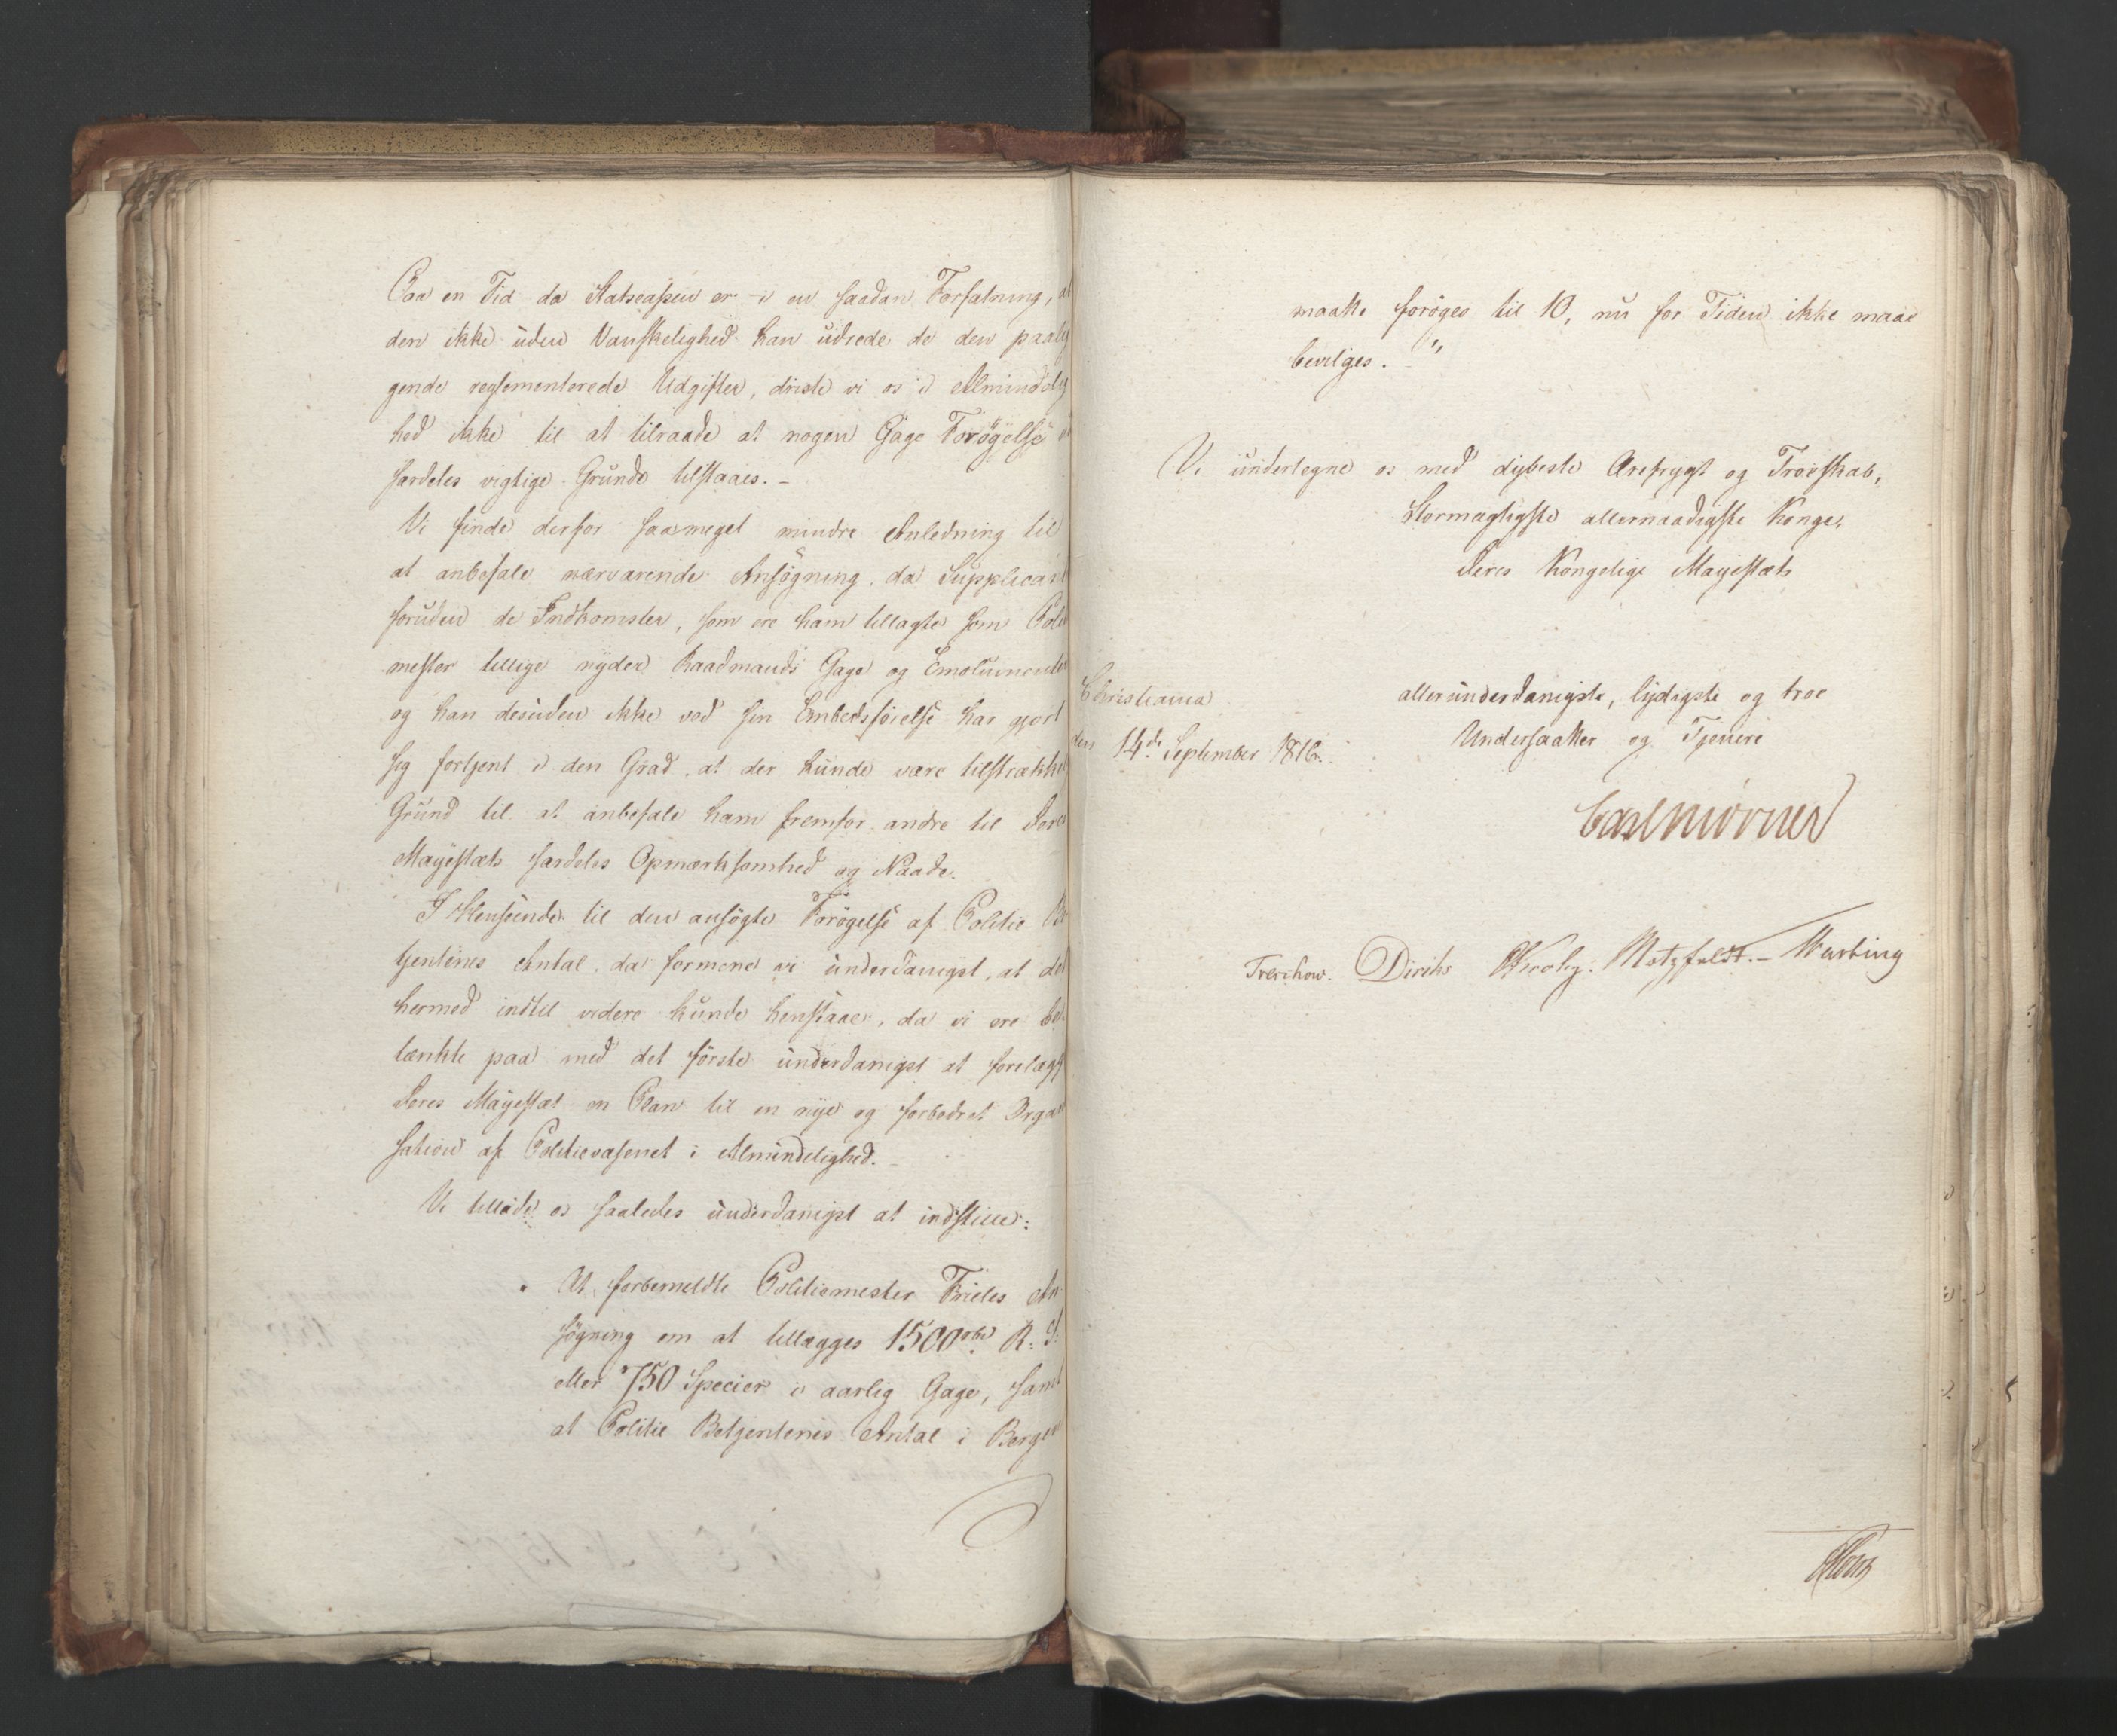 Paa en Tid da Statscassen er i en saadan Forfatning, at
den ikke uden Vanskelighed kan udrede de den paalig
gende reglementerede Udgifter, driste vi os i Almindelig
hed ikke til at tilraade at nogen Gage Forøgelse
særdeles vigtige Grunde tilstaaes. –
Vi finde derfor saameget mindre Anledning til
at anbefale nærværende Ansøgning, da Supplicant
foruden de Indkomster, som ere ham tillagte som Poli
mester tillige nyder Raadmands Gage og Emolumente
og han desuden ikke ved sin Embedsførelse har gjort
sig fortjent i den Grad, at der kunde være tilstrækkel
Grund til at anbefale ham fremfor andre til Deres
Majestæts særdeles Opmærksomhed og Naade.
I Henseende til den ansøgte Forøgelse af Politie Be
tjentenes Antal, da formene vi underdanigst, at det
hermed indtil videre kunde henstaae, da vi ere be
tænkte paa med det første underdanigst at forelægg
Deres Majestæt en Plan til en nye og forbedret Orga
sation af Politievæsenet i Almindelighed. –
Vi tillade os saaledes underdanigst at indstille:
" At forbemeldte Politiemester Frieles An
søgning om at tillægges 1500 rbd R: S.
eller 750 Species i aarlig Gage, samt
at Politie Betjentenes Antal i Bergen
maatte forøges til 10, nu for Tiden ikke maae
bevilges. "
Vi undertegne os med dybeste Ærefrygt og Troeskab,
Stormægtigste allernaadigste Konge,
Deres Kongelige Majestæts
allerunderdanigste, lydigste og troe
Undersaatter og Tjenere
Christiania
den 14de September 1816.
Carl Mörner
Treschow. Diriks Krohg. Motzfeldt. – Harbing